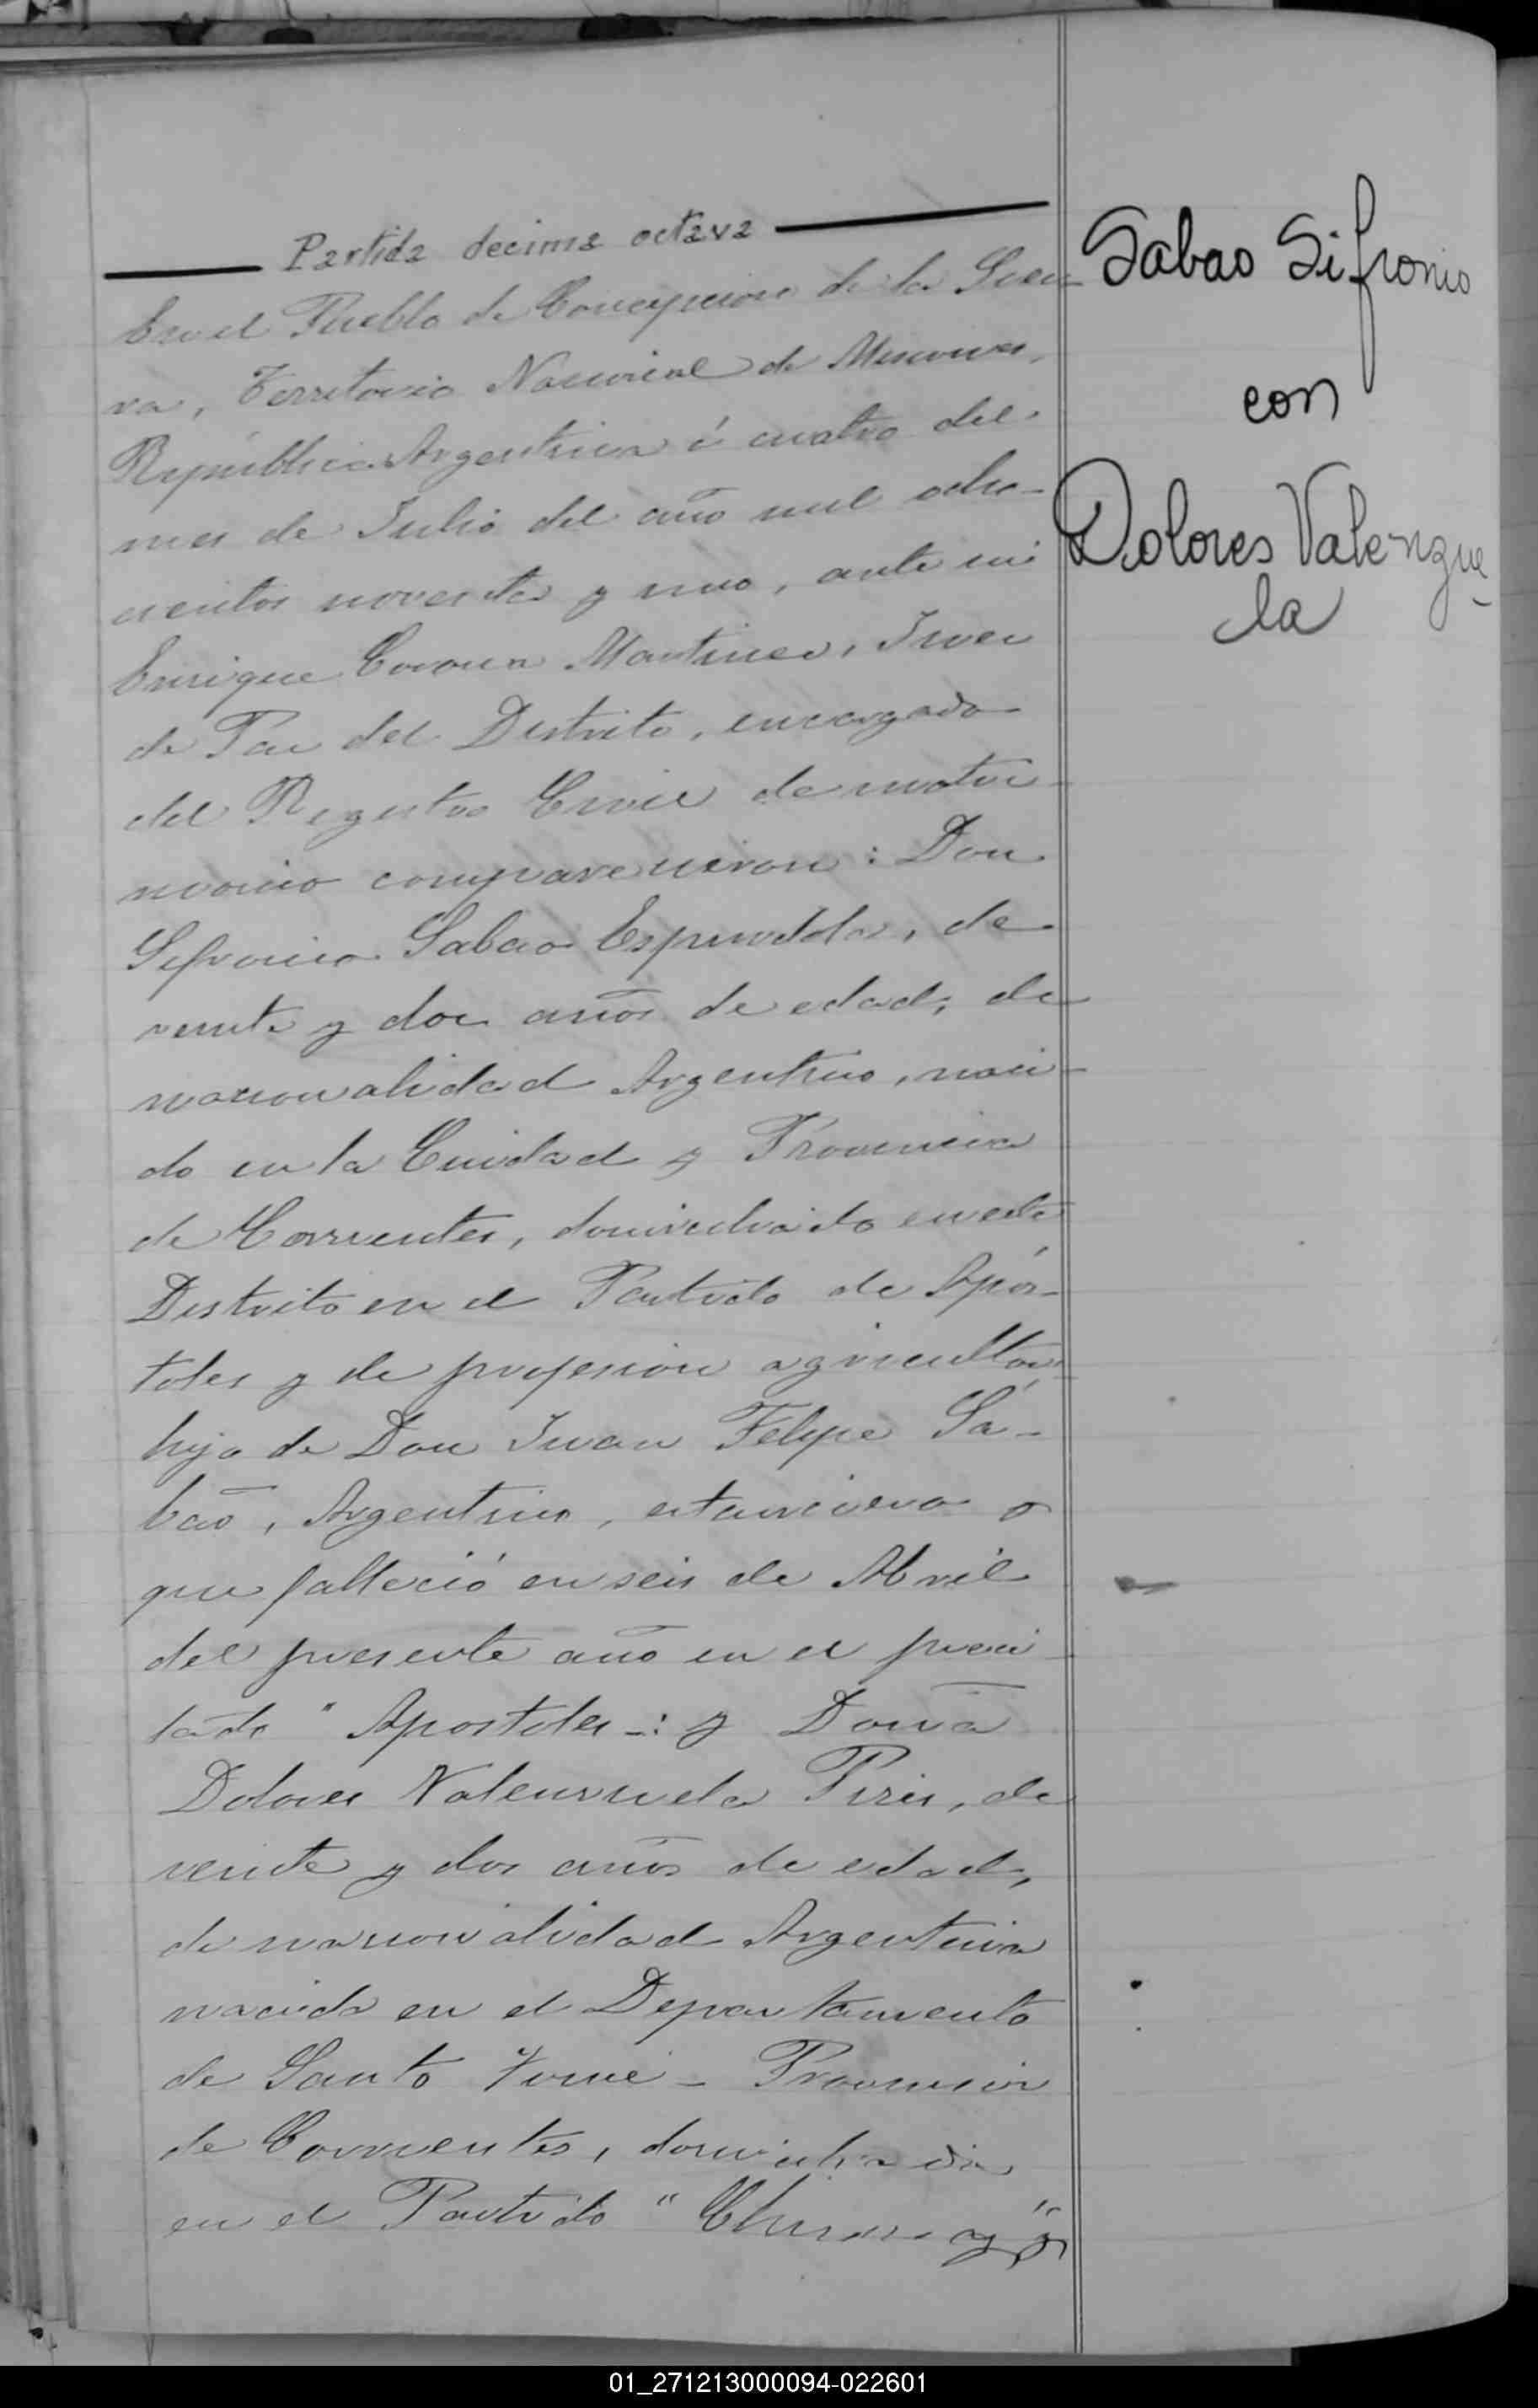 Partida decima octava
En el Pueblo de Concepcion de la Sier-
ra, Territorio Nacional de Misiones,
República Argentina á cuatro del
mes de Julio del año mil ocho-
cientos noventa y uno, ante mi
Enrique Corona Martinez, Juez
de Paz del Distrito, encargado
del Registro Civil de matri-
monio comparecieron: Don
Sifronio Sabao Espindola, de
veinte y dos años de edad, de
nacionalidad Argentino, naci-
do en la Ciudad y Provincia
de Corrientes, domiciliado en este
Distrito en el Partido de Após-
toles y de profesion agricultor,
hijo de Don Juan Felipe Sa-
bao, Argentino, estanciero y
que falleció en seis de Abril
del presente año en el preci-
tado "Apostoles-: y Doña
Dolores Valenzuela Piris, de
veinte y dos años de edad,
de nacionalidad Argentina
nacida en el Departamento
de Santo Tomé - Provincia
de Corrientes, domiciliada
en el Partido " y
Sabao Sifronio
con
Dolores Valenzue-
la
01_271213000094-022601